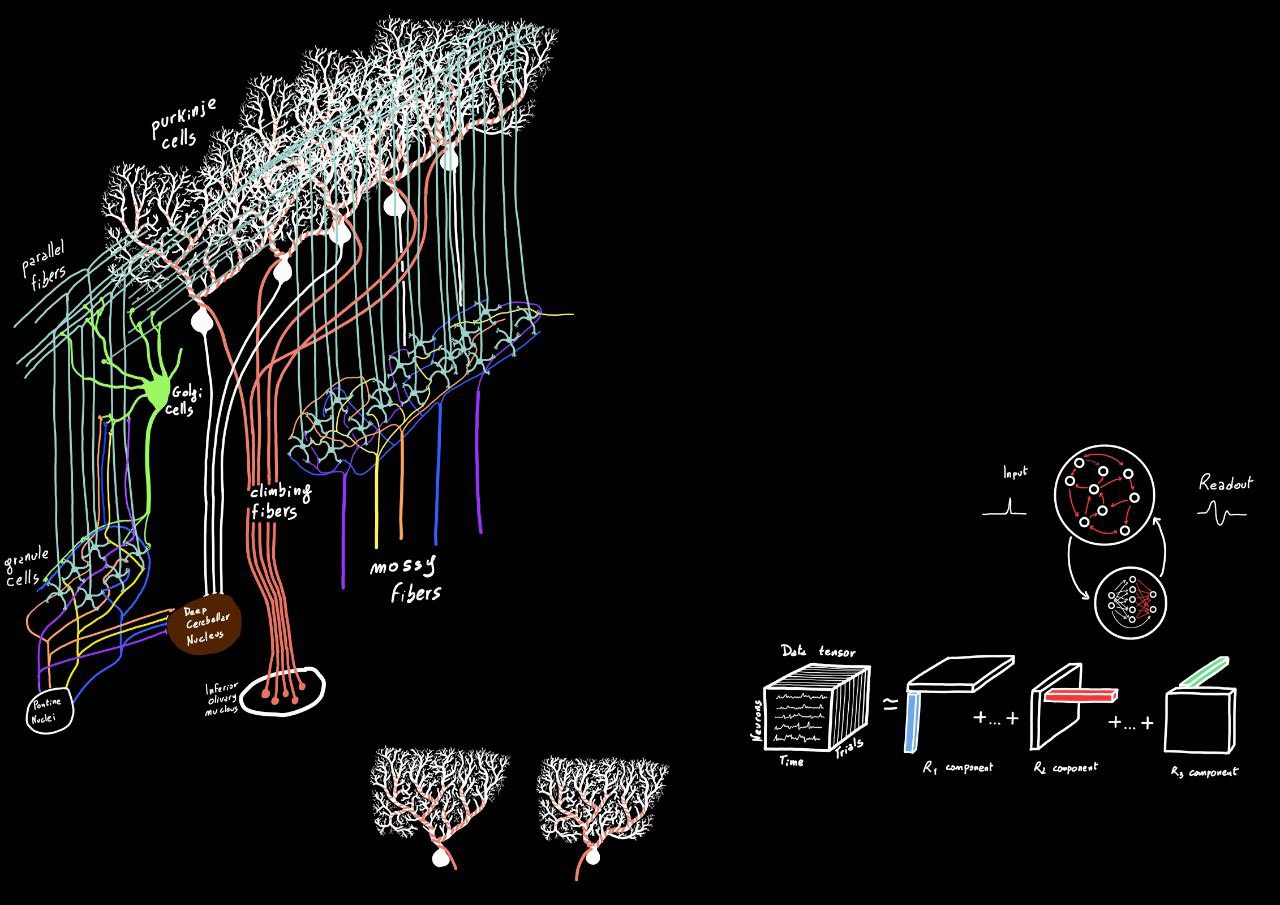 purkinje
cells
parallel
fibers
Golgi
cells
climbing
fibers
granule
cells
mossy
fibers
Deep
Cerebellar
Nucleus
Inferior
olivary
nucleus
Pontine
Nuclei
Input
Readout
Data tensor
Neurons
Time
Trials
≈
+...+
+...+
R₁ component
R₂ component
R₃ component